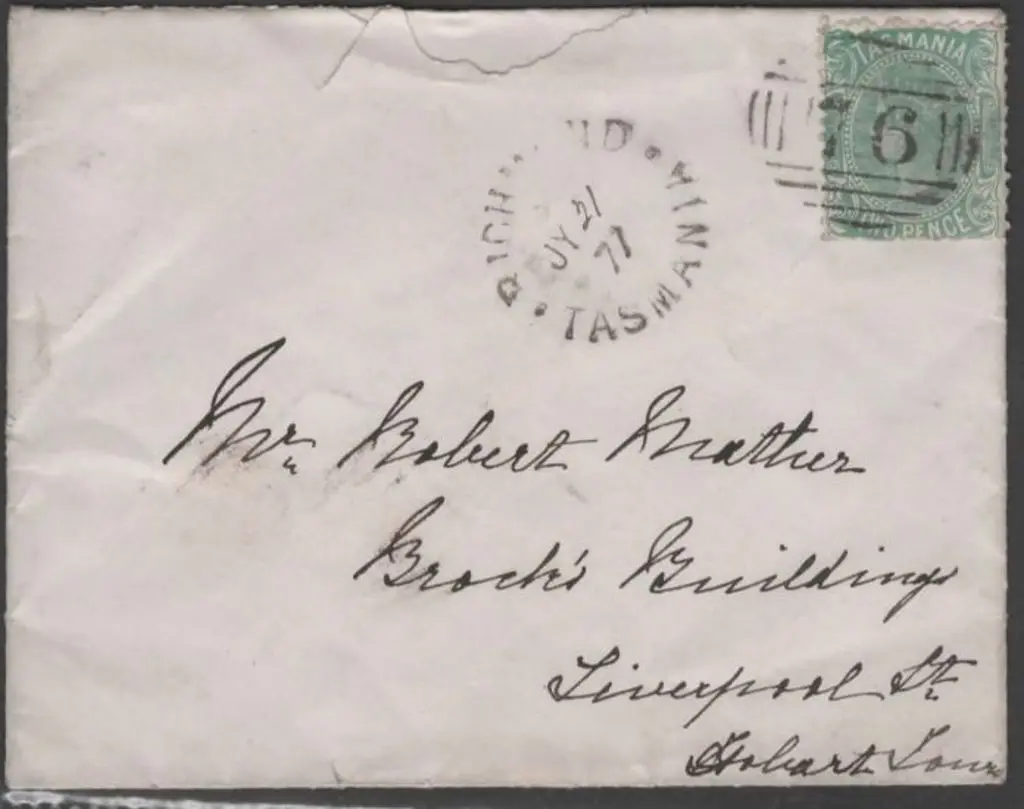 TASMANIA
76
TWO PENCE
RICHMOND • TASMANIA •
JY 21
77
Mr. Robert Mather
Brock's Buildings
Liverpool St.
Hobart Town